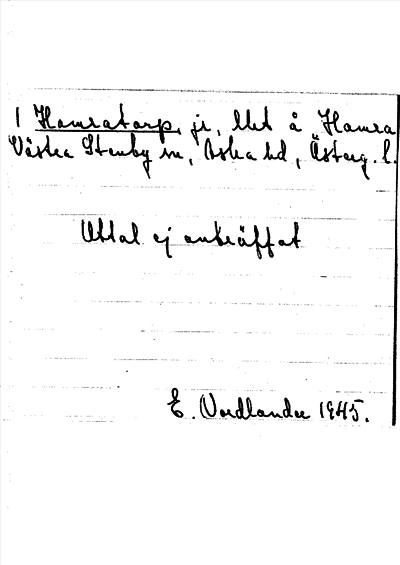 1 Hamratorp, ji, llet å Hamra
Västra Stenby sn, Aska hd, Österg. l.
Uttal ej anträffat
E. Nordlander 1945.